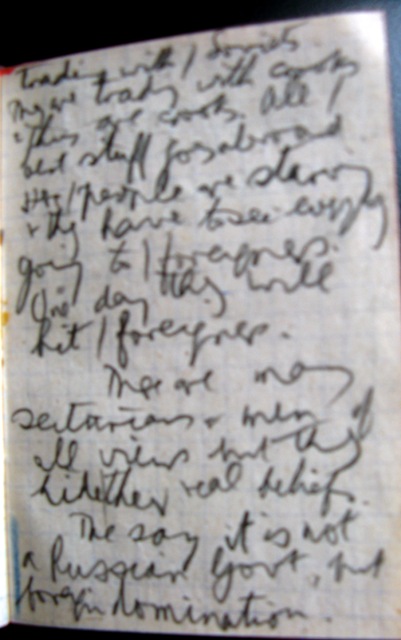 trading with / Soviets
They are trading with crooks
& thieves are crooks. All /
best stuff goes abroad
/ people are starving
& they have to see everything
going to / foreigners.
One day they will
hit / foreigners.
There are many
sectarians & men of
all views but they
hide their real beliefs.
The say it is not
a Russian Govt, but
foreign domination.